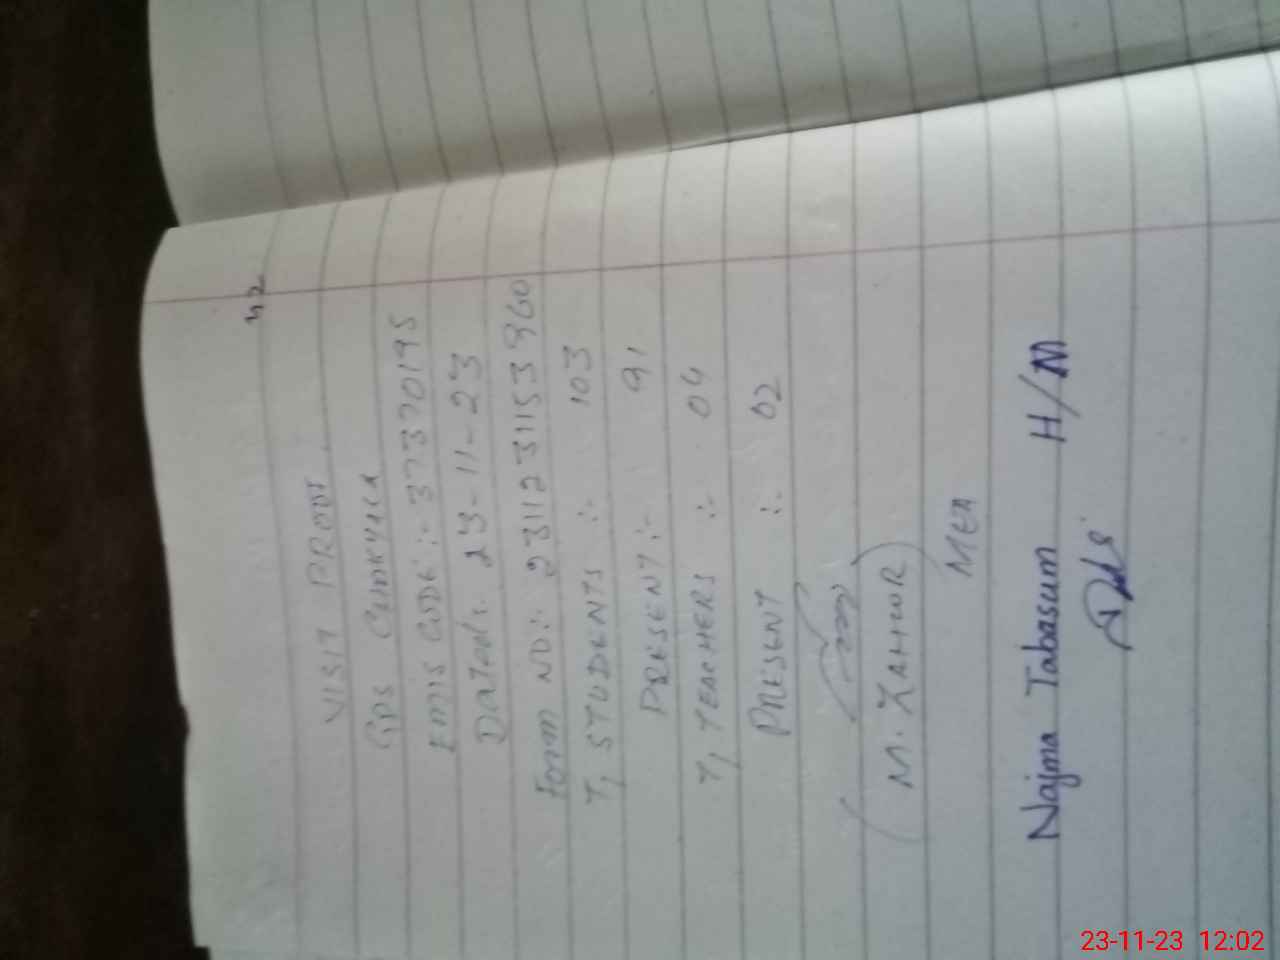 42
VISIT PROOF
GPS
EMIS CODE :- 37370195
DATED:. 23-11-23
Form NO:. 2311231153960
T, STUDENTS :. 103
PRESENT :- 91
T, TEACHERS :. 04
PRESENT :. 02
(M. ZAHOOR)
MEA
Najma Tabasum H/M
23-11-23 12:02